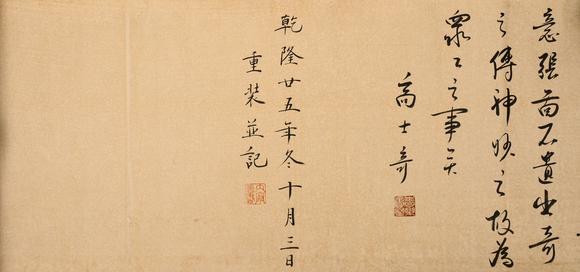 意張不遺出奇
之傳神妙之故為
眾之事矣
高士奇
乾隆廿五年冬十月三日
重裝並記